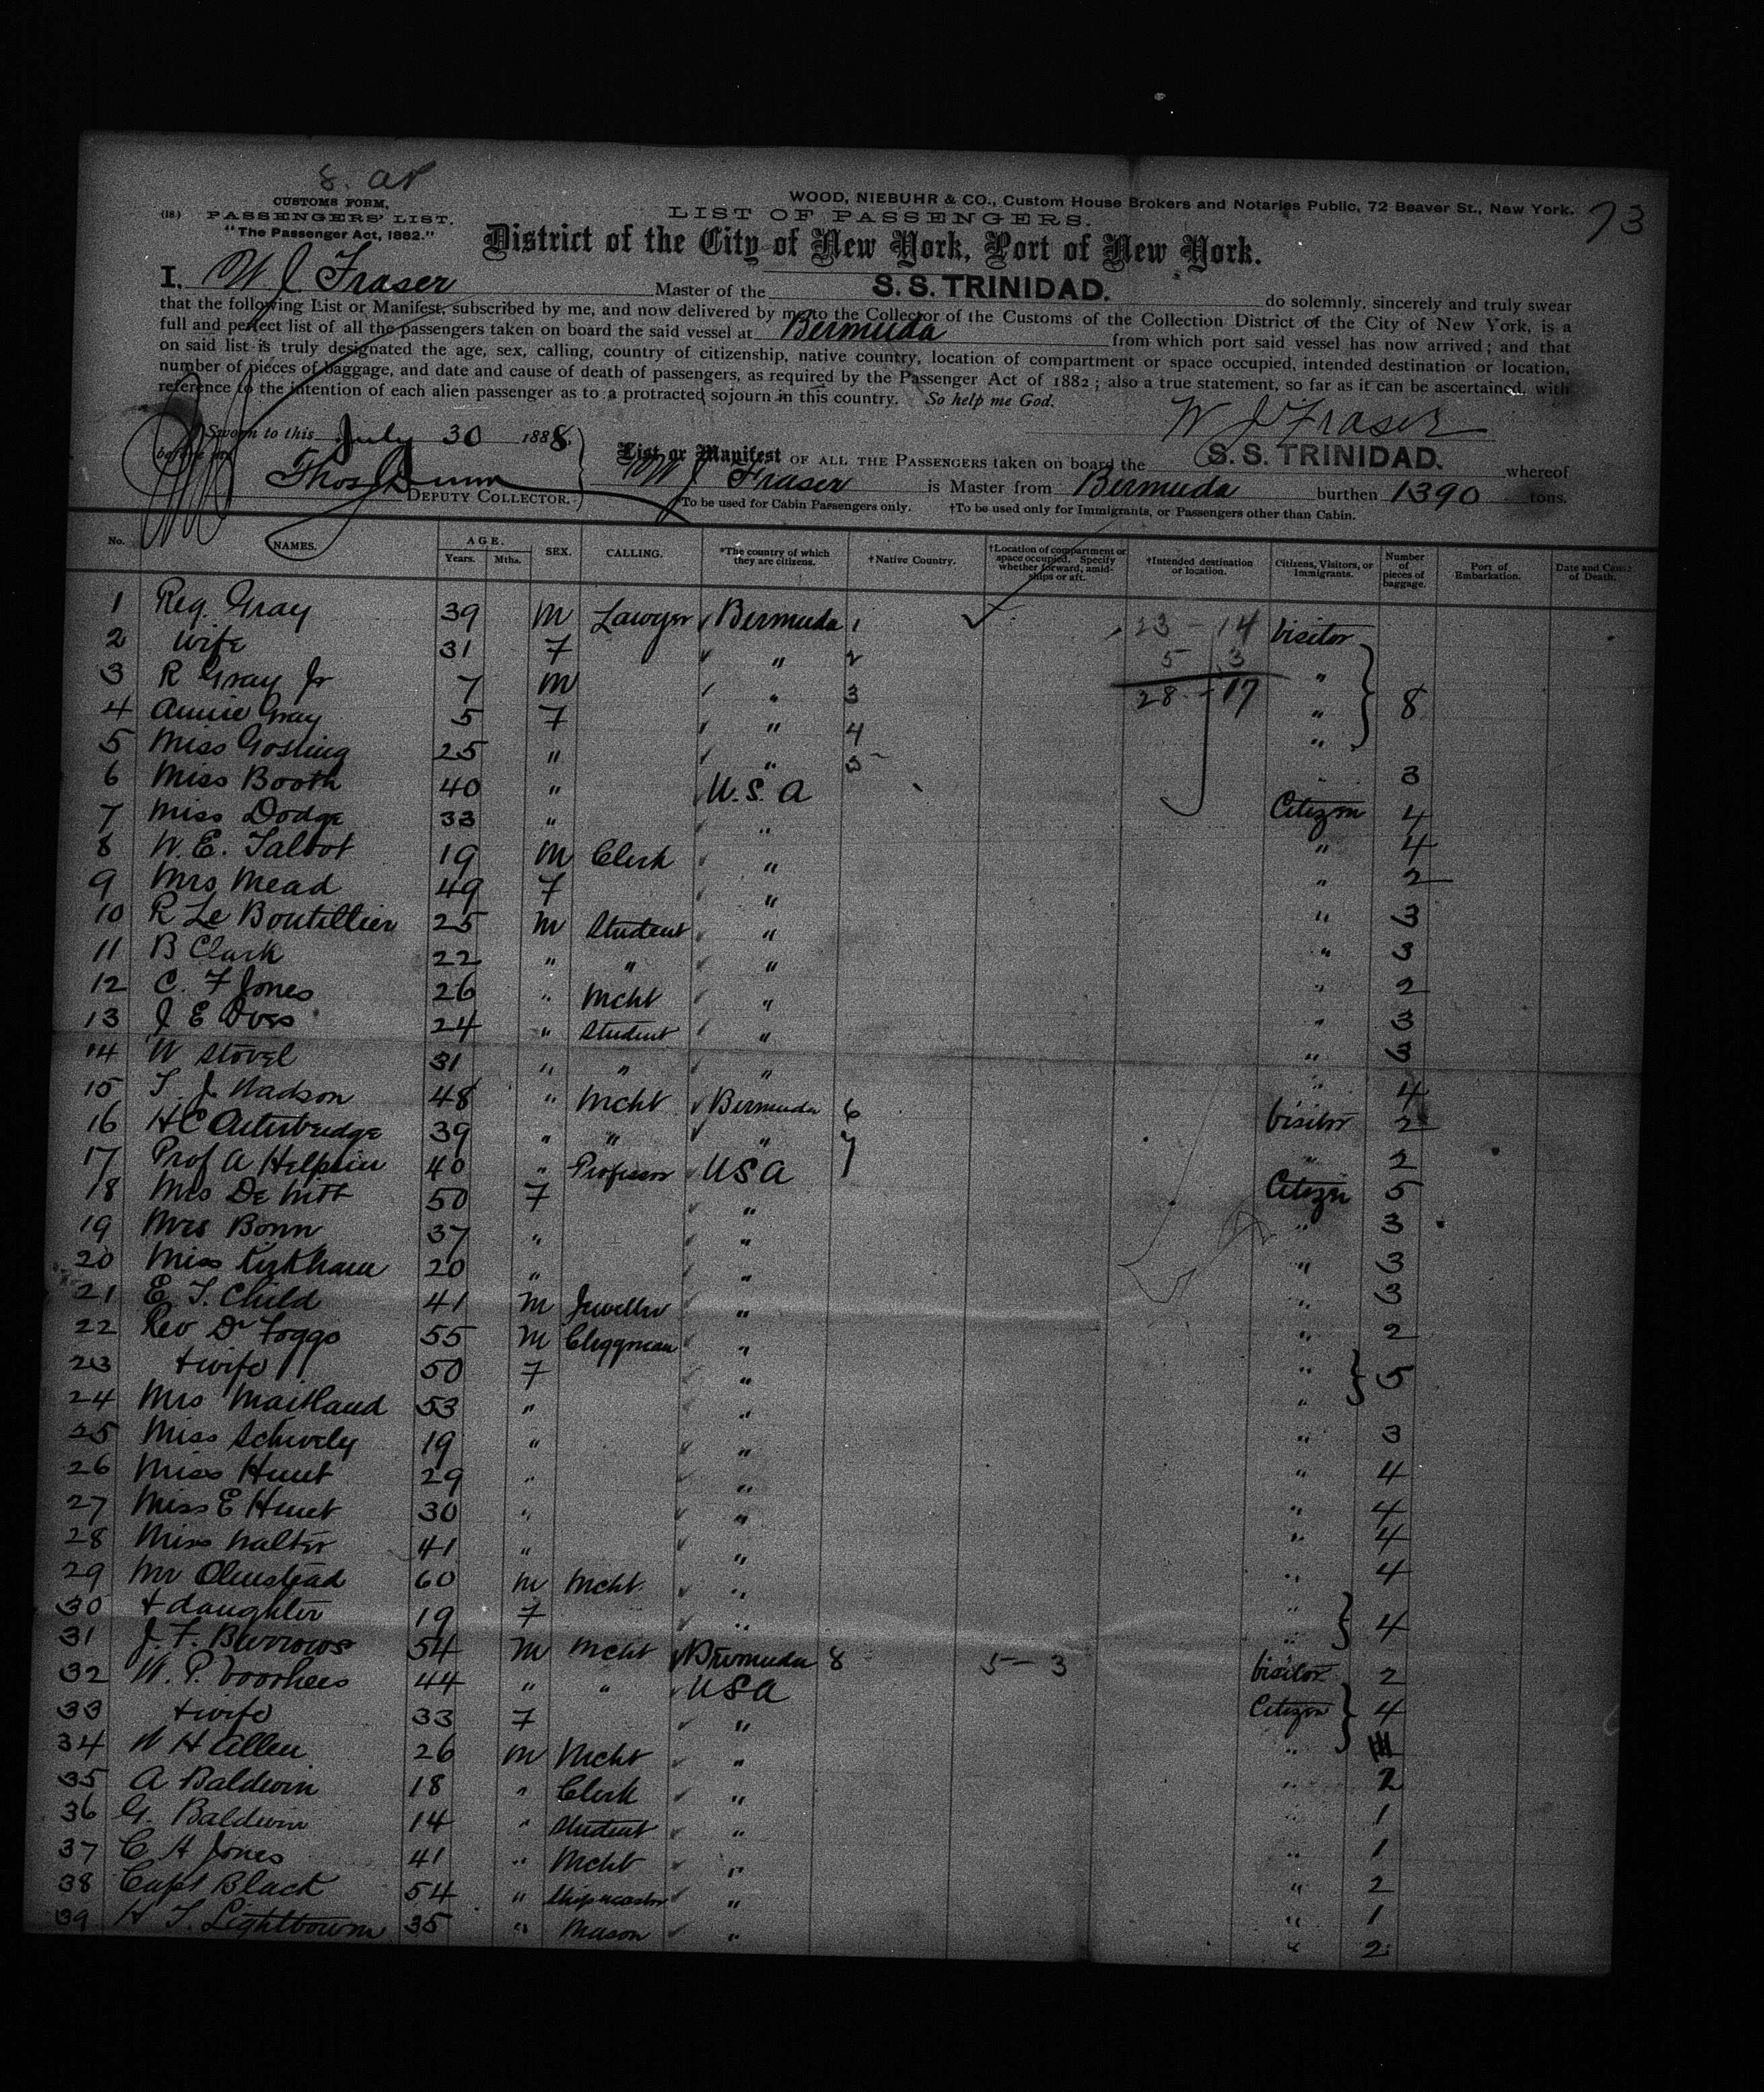 8.
73
CUSTOMS FORM,
WOOD, NIEBUHR & CO., Custom House Brokers and Notaries Public, 72 Beaver St., New York.
(18.) PASSENGERS' LIST.
LIST OF PASSENGERS.
"The Passenger Act, 1882."
District of the City of New York, Port of New York.
I, W J Fraser Master of the S. S. TRINIDAD. do solemnly, sincerely and truly swear
that the following List or Manifest, subscribed by me, and now delivered by me to the Collector of the Customs of the Collection District of the City of New York, is a
full and perfect list of all the passengers taken on board the said vessel at Bermuda from which port said vessel has now arrived; and that
on said list is truly designated the age, sex, calling, country of citizenship, native country, location of compartment or space occupied, intended destination or location,
number of pieces of baggage, and date and cause of death of passengers, as required by the Passenger Act of 1882; also a true statement, so far as it can be ascertained, with
reference to the intention of each alien passenger as to a protracted sojourn in this country. So help me God.
W J Fraser
Sworn to this July 30 1888,
before me
Thos Dunn
DEPUTY COLLECTOR.
List or Manifest OF ALL THE PASSENGERS taken on board the S. S. TRINIDAD. whereof
W J Fraser is Master from Bermuda burthen 1390 tons.
*To be used for Cabin Passengers only. †To be used only for Immigrants, or Passengers other than Cabin.
No. NAMES. AGE. Years. Mths. SEX. CALLING. *The country of which they are citizens. †Native Country. †Location of compartment or space occupied. Specify whether forward, amidships or aft. †Intended destination or location. Citizens, Visitors, or Immigrants. Number of pieces of baggage. Port of Embarkation. Date and Cause of Death.
1 Reg. Gray 39 M Lawyer Bermuda 1 23 - 14 Visitor
2 Wife 31 F " 2 5 3 "
3 R Gray Jr 7 M " 3 28 - 17 " 8
4 Annie Gray 5 F " 4 "
5 Miss Gosling 25 " " 5 " 3
6 Miss Booth 40 " U.S.A Citizen 4
7 Miss Dodge 33 " " " 4
8 W. E. Talbot 19 M Clerk " " 2
9 Mrs Mead 49 F " " 3
10 R Le Boutillier 25 M Student " " 3
11 B Clark 22 " " " " 2
12 C. F Jones 26 " Mcht " " 3
13 J E 24 " Student " " 3
14 W Stovel 31 " " " " 4
15 T. J. Wadson 48 " Mcht Bermuda 6 Visitor 2
16 H C Outerbridge 39 " " " 7 " 2
17 Prof A 40 " Professor USA Citizen 5
18 Mrs De Witt 50 F " " 3
19 Mrs Bonn 37 " " " 3
20 Miss Kirkham 20 " " " 3
21 E. T. Child 41 M Jeweller " " 2
22 Rev Dr Foggo 55 M Clergyman " "
23 + wife 50 F " " 5
24 Mrs Maitland 53 " " " 3
25 Miss Schively 19 " " " 4
26 Miss Hunt 29 " " " 4
27 Miss E Hunt 30 " " " 4
28 Miss Walter 41 " " " 4
29 Mr Olmstead 60 M Mcht " "
30 + daughter 19 F " " 4
31 J. F. Burrows 54 M Mcht Bermuda 8 5 - 3 Visitor 2
32 W. P. Voorhees 44 " " USA Citizen 4
33 + wife 33 F " "
34 W H Allen 26 M Mcht " " 2
35 A Baldwin 18 " Clerk " " 1
36 G. Baldwin 14 " Student " " 1
37 C H Jones 41 " Mcht " " 2
38 Capt Black 54 " Shipmaster " " 1
39 H T. Lightbourn 35 " Mason " " 2